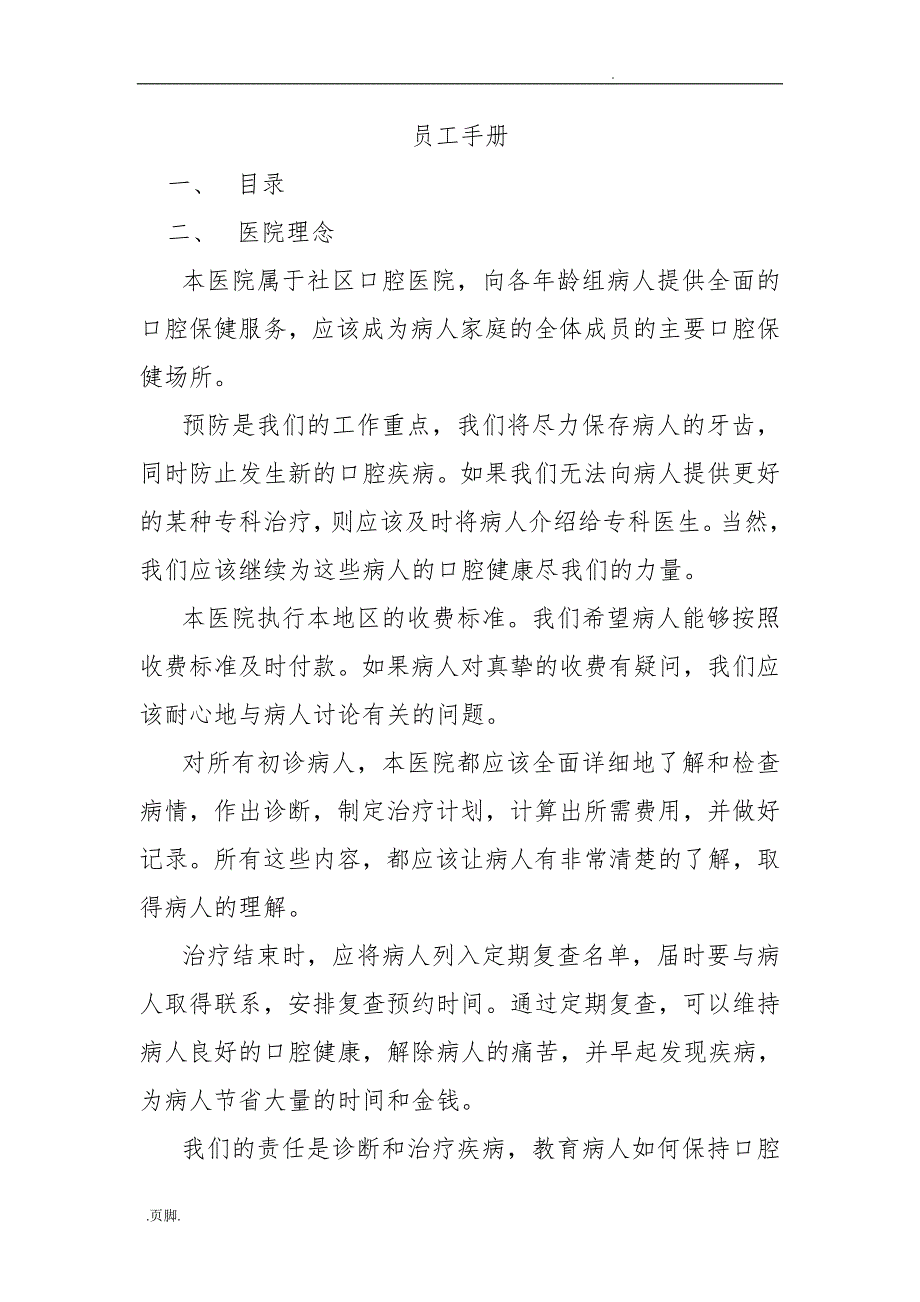 员工手册
一、 目录
二、 医院理念
本医院属于社区口腔医院，向各年龄组病人提供全面的
口腔保健服务，应该成为病人家庭的全体成员的主要口腔保
健场所。
预防是我们的工作重点，我们将尽力保存病人的牙齿，
同时防止发生新的口腔疾病。如果我们无法向病人提供更好
的某种专科治疗，则应该及时将病人介绍给专科医生。当然，
我们应该继续为这些病人的口腔健康尽我们的力量。
本医院执行本地区的收费标准。我们希望病人能够按照
收费标准及时付款。如果病人对真挚的收费有疑问，我们应
该耐心地与病人讨论有关的问题。
对所有初诊病人，本医院都应该全面详细地了解和检查
病情，作出诊断，制定治疗计划，计算出所需费用，并做好
记录。所有这些内容，都应该让病人有非常清楚的了解，取
得病人的理解。
治疗结束时，应将病人列入定期复查名单，届时要与病
人取得联系，安排复查预约时间。通过定期复查，可以维持
病人良好的口腔健康，解除病人的痛苦，并早起发现疾病，
为病人节省大量的时间和金钱。
我们的责任是诊断和治疗疾病，教育病人如何保持口腔
.页脚.